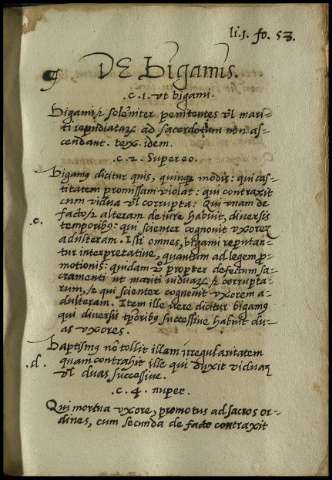 li. 1. fo. 53.
DE Bigamis.
.c. 1. ut bigami.
Bigami et solenniter penitentes vel mari-
ti repudiatarum ad sacerdotium non as-
cendant. tex. idem.
.c. 2. Super eo.
Bigamus dicitur quis, quinque modis: qui cas-
titatem promissam violat: qui contraxit
cum vidua vel corrupta: Qui unam de
facto, et alteram de iure habuit, diversis
temporibus: qui scienter cognovit uxorem
.c. adulteram. Isti omnes, bigami reputan-
tur interpretative, quantum ad legem pro-
motionis: quidam propter defectum sa-
cramenti ut mariti viduarum, et corrupta-
rum, et qui scienter cognovit uxorem a-
dulteram. Item ille vere dicitur bigamus
qui diversis temporibus successive habuit du-
as uxores.
Baptismus non tollit illam irregularitatem
.d. quam contrahit ille qui duxit viduam
vel duas successive.
.c. 4. nuper.
Qui mortua uxore, promotus ad sacros or-
dines, cum secunda de facto contraxit